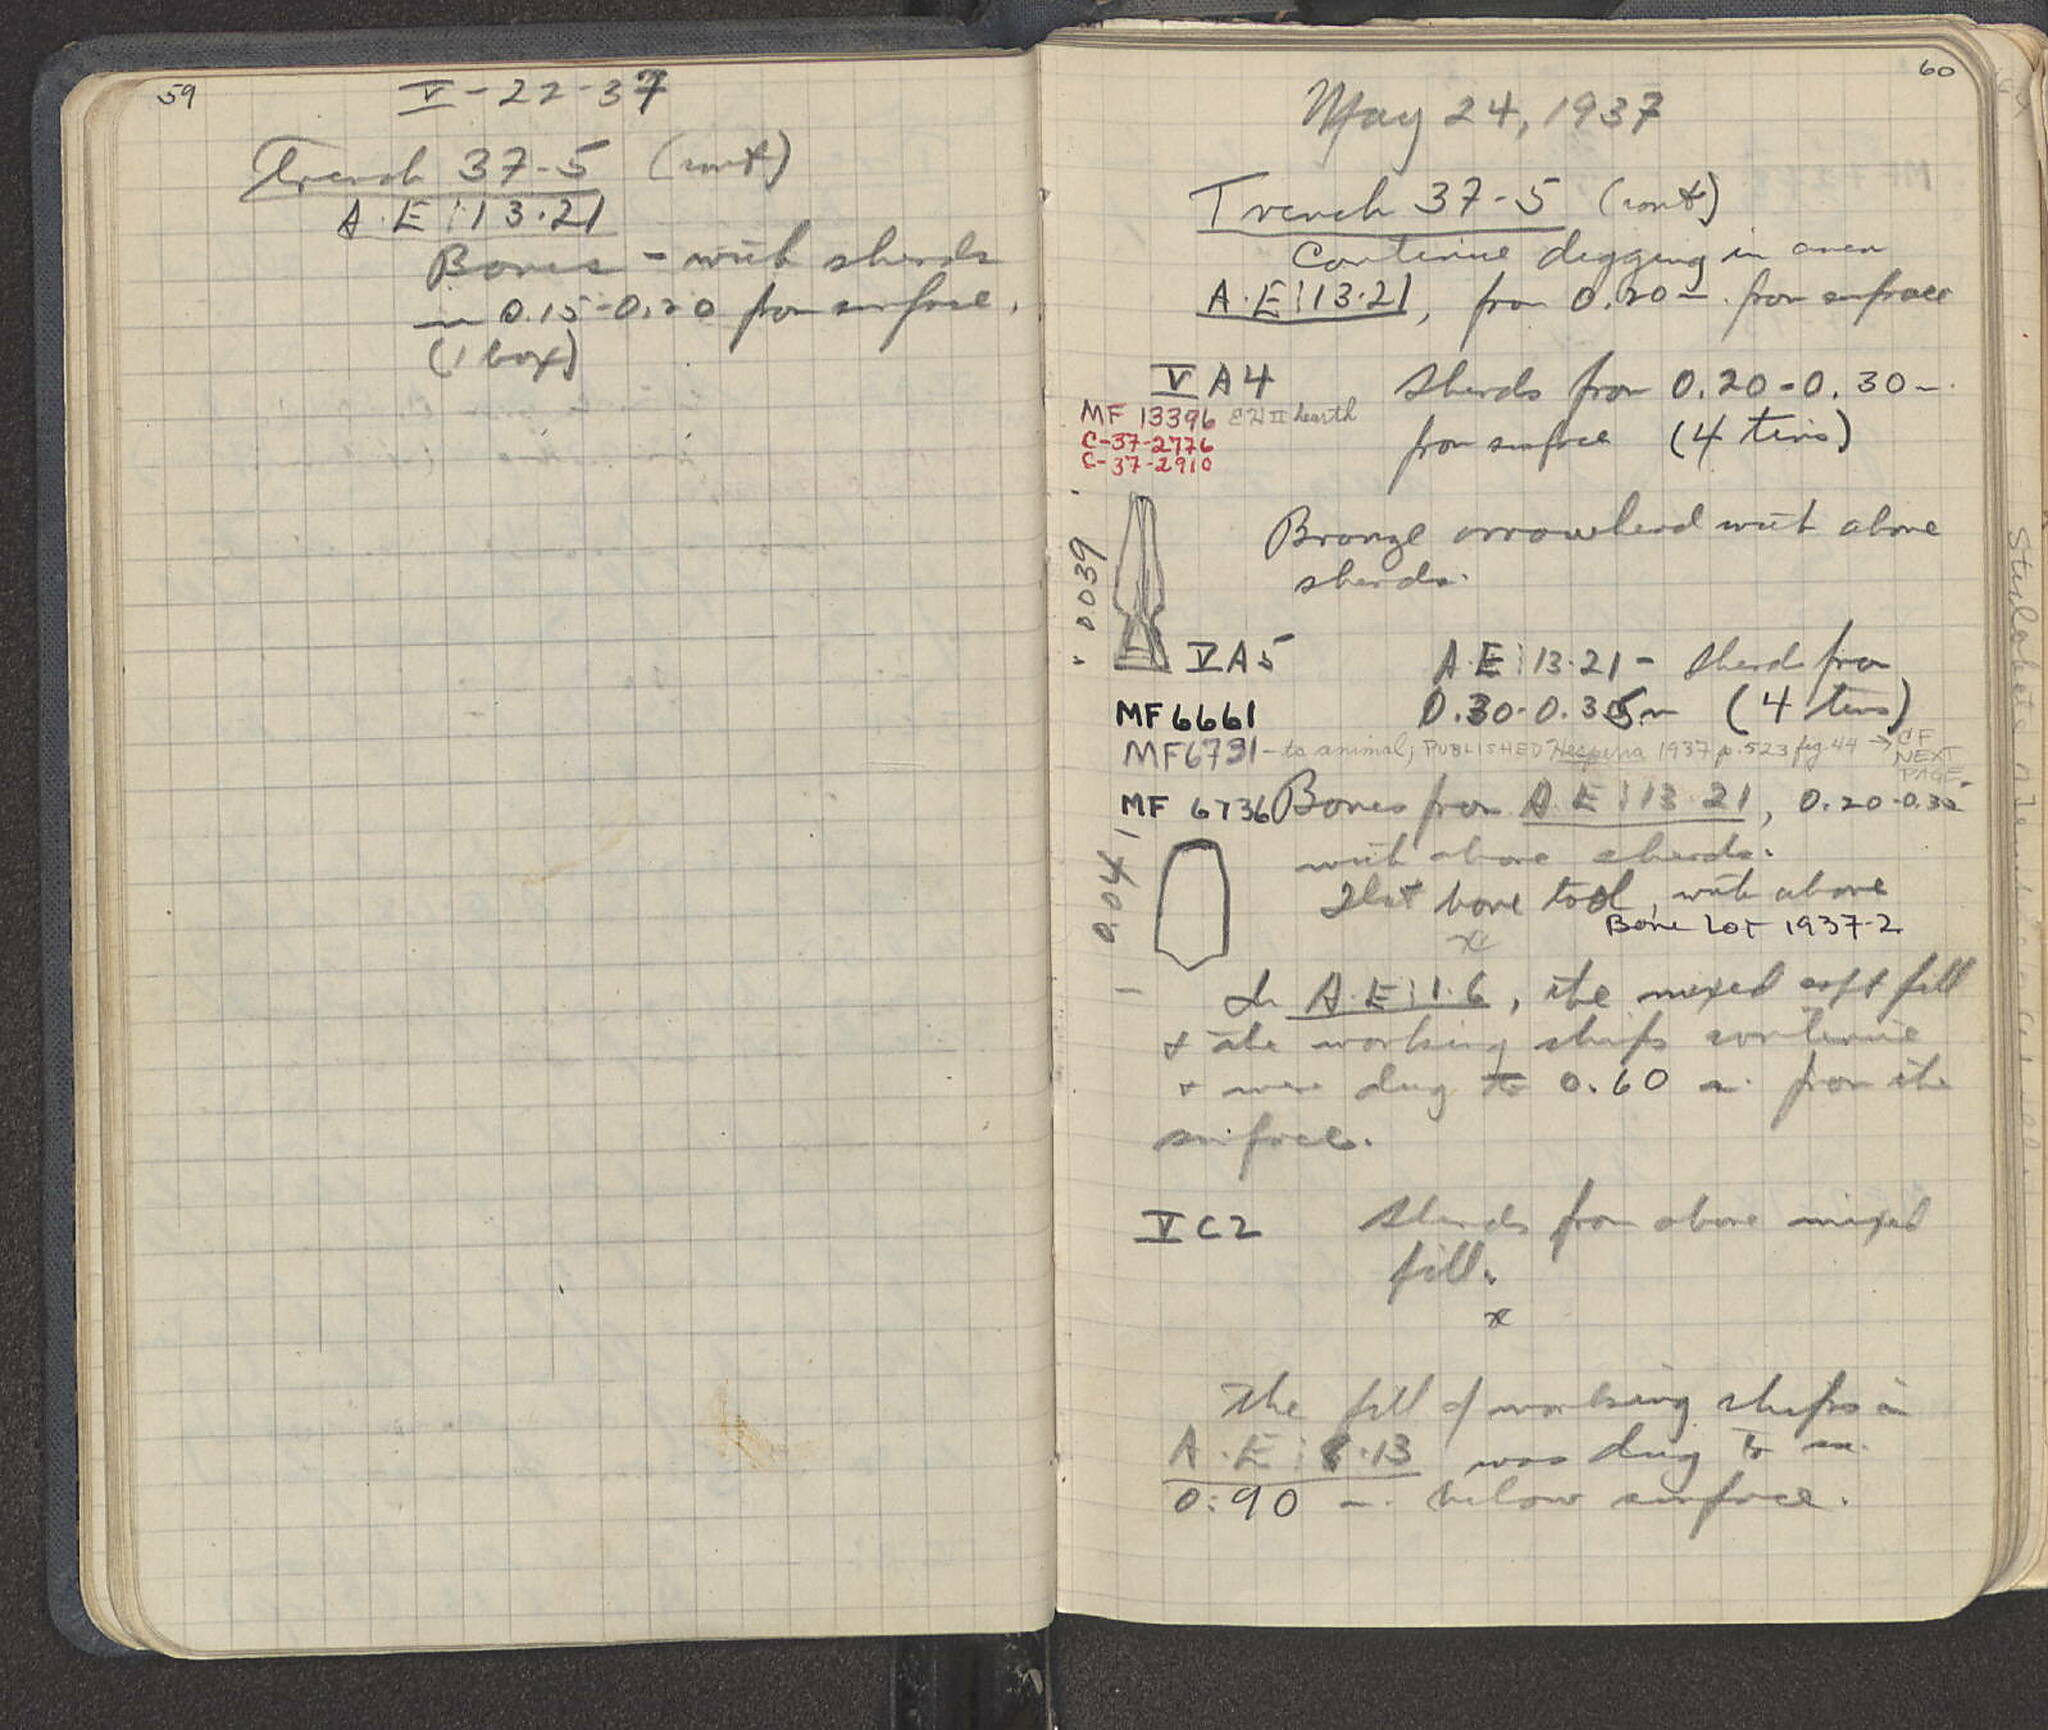 59
V-22-37
Trench 37-5 (cont)
A·E:13·21
Bones - with sherds
m 0.15-0.20 from surface.
(1 box)
60
May 24, 1937
Trench 37-5 (cont)
Continue digging in area
A·E:13·21, from 0.20 m. from surface
V A4 Sherds from 0.20-0.30 m.
MF 13396 EH II hearth
C-37-2776
C-37-2910
from surface (4 tins)
0.039
Bronze arrowhead with above
sherds.
V A5 A·E:13·21 - Sherds from
MF 6661 0.30-0.35 m (4 tins)
MF 6791 - to animal; PUBLISHED Hesperia 1937 p. 523 fig. 44 → CF
NEXT
PAGE
MF 6736 Bones from A·E:13·21, 0.20-0.35
with above sherds.
0.041
Flat bone tool, with above
Bone Lot 1937-2
x
In A·E:1·6, the mixed soft fill
+ the working chips continue
+ were dug to 0.60 m. from the
surface.
V C2 Sherds from above mixed
fill.
x
The fill of working chips in
A·E:8·13 was dug to m.
0.90 m. below surface.